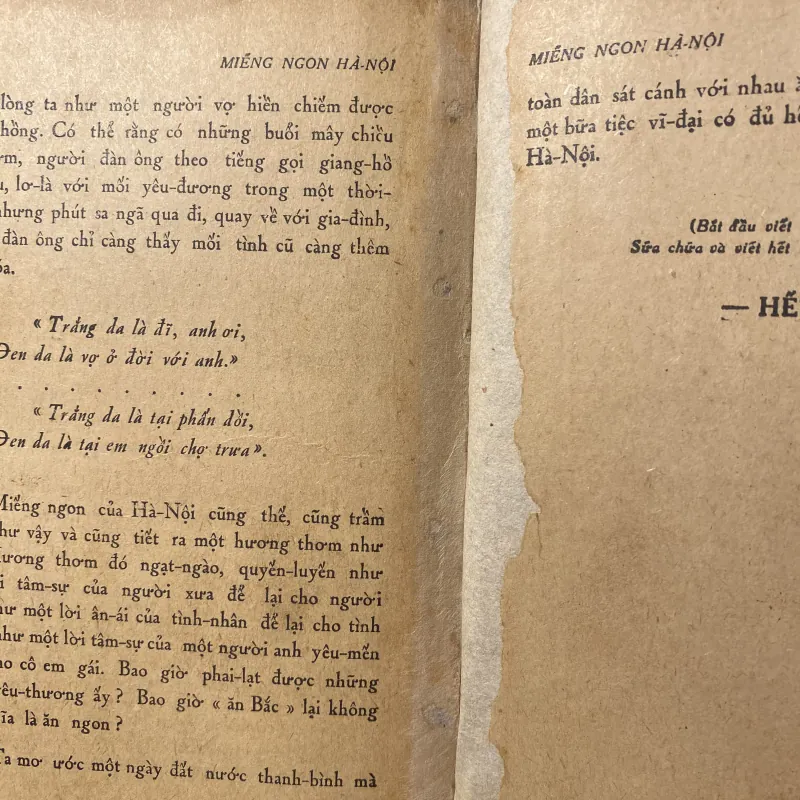 MIẾNG NGON HÀ-NỘI
lòng ta như một người vợ hiền chiếm được
hồng. Có thể rằng có những buổi mây chiều
người đàn ông theo tiếng gọi giang-hồ
lơ-là với mối yêu-đương trong một thời-
nhưng phút sa ngã qua đi, quay về với gia-đình,
đàn ông chỉ càng thấy mối tình cũ càng thêm
« Trắng da là đĩ, anh ơi,
Đen da là vợ ở đời với anh.»
. . . . . . . . .
« Trắng da là tại phấn dồi,
Đen da là tại em ngồi chợ trưa».
Miếng ngon của Hà-Nội cũng thế, cũng trầm
như vậy và cũng tiết ra một hương thơm như
hương thơm đó ngạt-ngào, quyến-luyến như
tâm-sự của người xưa để lại cho người
như một lời ân-ái của tình-nhân để lại cho tình
như một lời tâm-sự của một người anh yêu-mến
cho cô em gái. Bao giờ phai-lạt được những
yêu-thương ấy ? Bao giờ « ăn Bắc » lại không
là ăn ngon ?
Ta mơ ước một ngày đất nước thanh-bình mà
MIẾNG NGON HÀ-NỘI
toàn dân sát cánh với nhau
một bữa tiệc vĩ-đại có đủ
Hà-Nội.
(Bắt đầu viết
Sữa chữa và viết hết
— HẾ